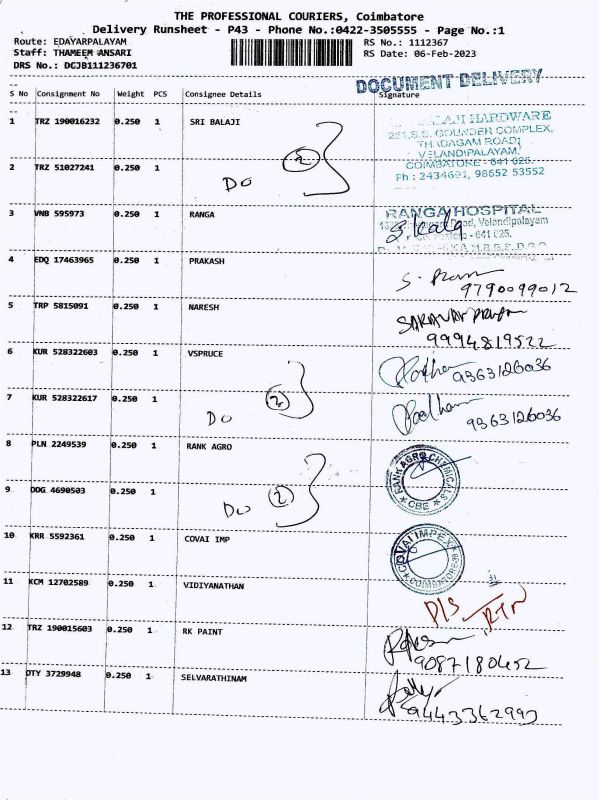 THE PROFESSIONAL COURIERS, Coimbatore
Delivery Runsheet - P43 - Phone No.:0422-3505555 - Page No.:1
Route: EDAYARPALAYAM RS No.: 1112367
Staff: THAMEEM ANSARI RS Date: 06-Feb-2023
DRS No.: DCJB111236701
DOCUMENT DELIVERY
S No Consignment No Weight PCS Consignee Details Signature
1 TRZ 190016232 0.250 1 SRI BALAJI
HARDWARE
251,S.S. GOUNDER COMPLEX,
THADAGAM ROAD,
VELANDIPALAYAM,
COIMBATORE - 641 025.
Ph : 2434691, 98652 53552
2 TRZ 51027241 0.250 1
Do 2
3 VNB 595973 0.250 1 RANGA
RANGA HOSPITAL
Road, Velandipalayam
- 641 025.
4 EDQ 17463965 0.250 1 PRAKASH
9790099012
5 TRP 5815091 0.250 1 NARESH
9994819522
6 KUR 528322603 0.250 1 VSPRUCE
9363126036
7 KUR 528322617 0.250 1
Do 2
9363126036
8 PLN 2249539 0.250 1 RANK AGRO
RANK AGRO CHEMICALS
CBE
9 DDG 4690503 0.250 1
Do 2
10 KRR 5592361 0.250 1 COVAI IMP
COVAI IMPEX
COIMBATORE
11 KCM 12702589 0.250 1 VIDIYANATHAN
D/S RTN
12 TRZ 190015603 0.250 1 RK PAINT
9087180452
13 OTY 3729948 0.250 1 SELVARATHINAM
9443362993